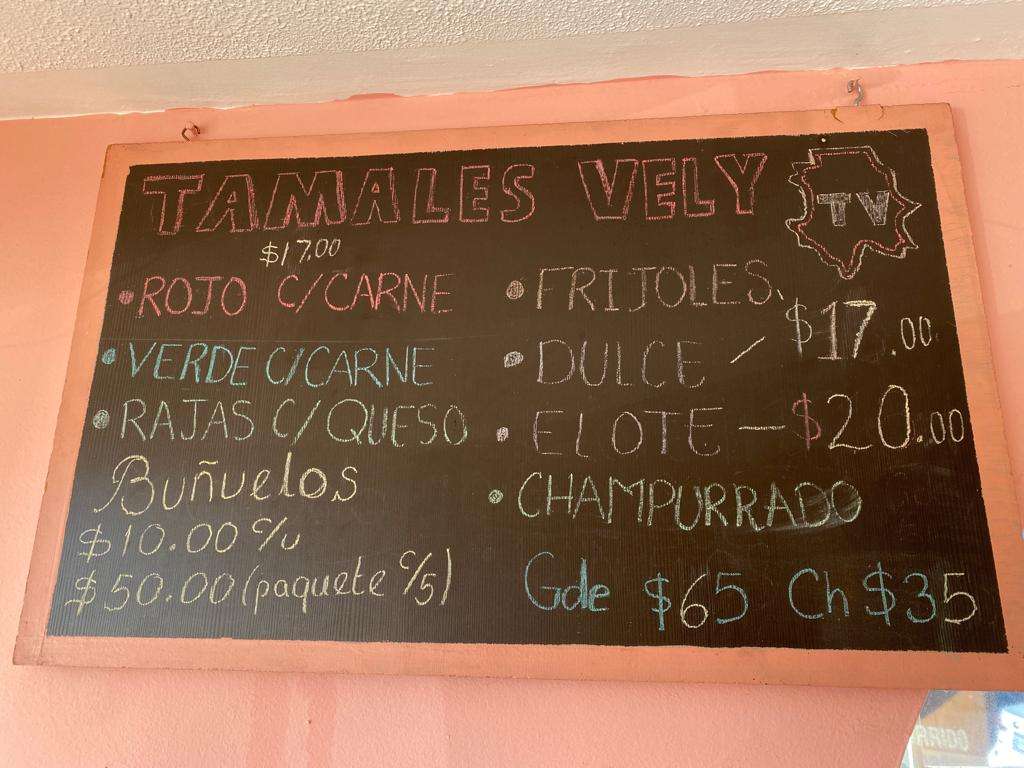 TAMALES VELY
TV
$17.00
• ROJO C/CARNE
• VERDE C/CARNE
• RAJAS C/QUESO
Buñuelos
$10.00 c/u
$50.00 (paquete c/5)
• FRIJOLES
• DULCE / $17.00
• ELOTE — $20.00
• CHAMPURRADO
Gde $65 Ch $35
RRIDO